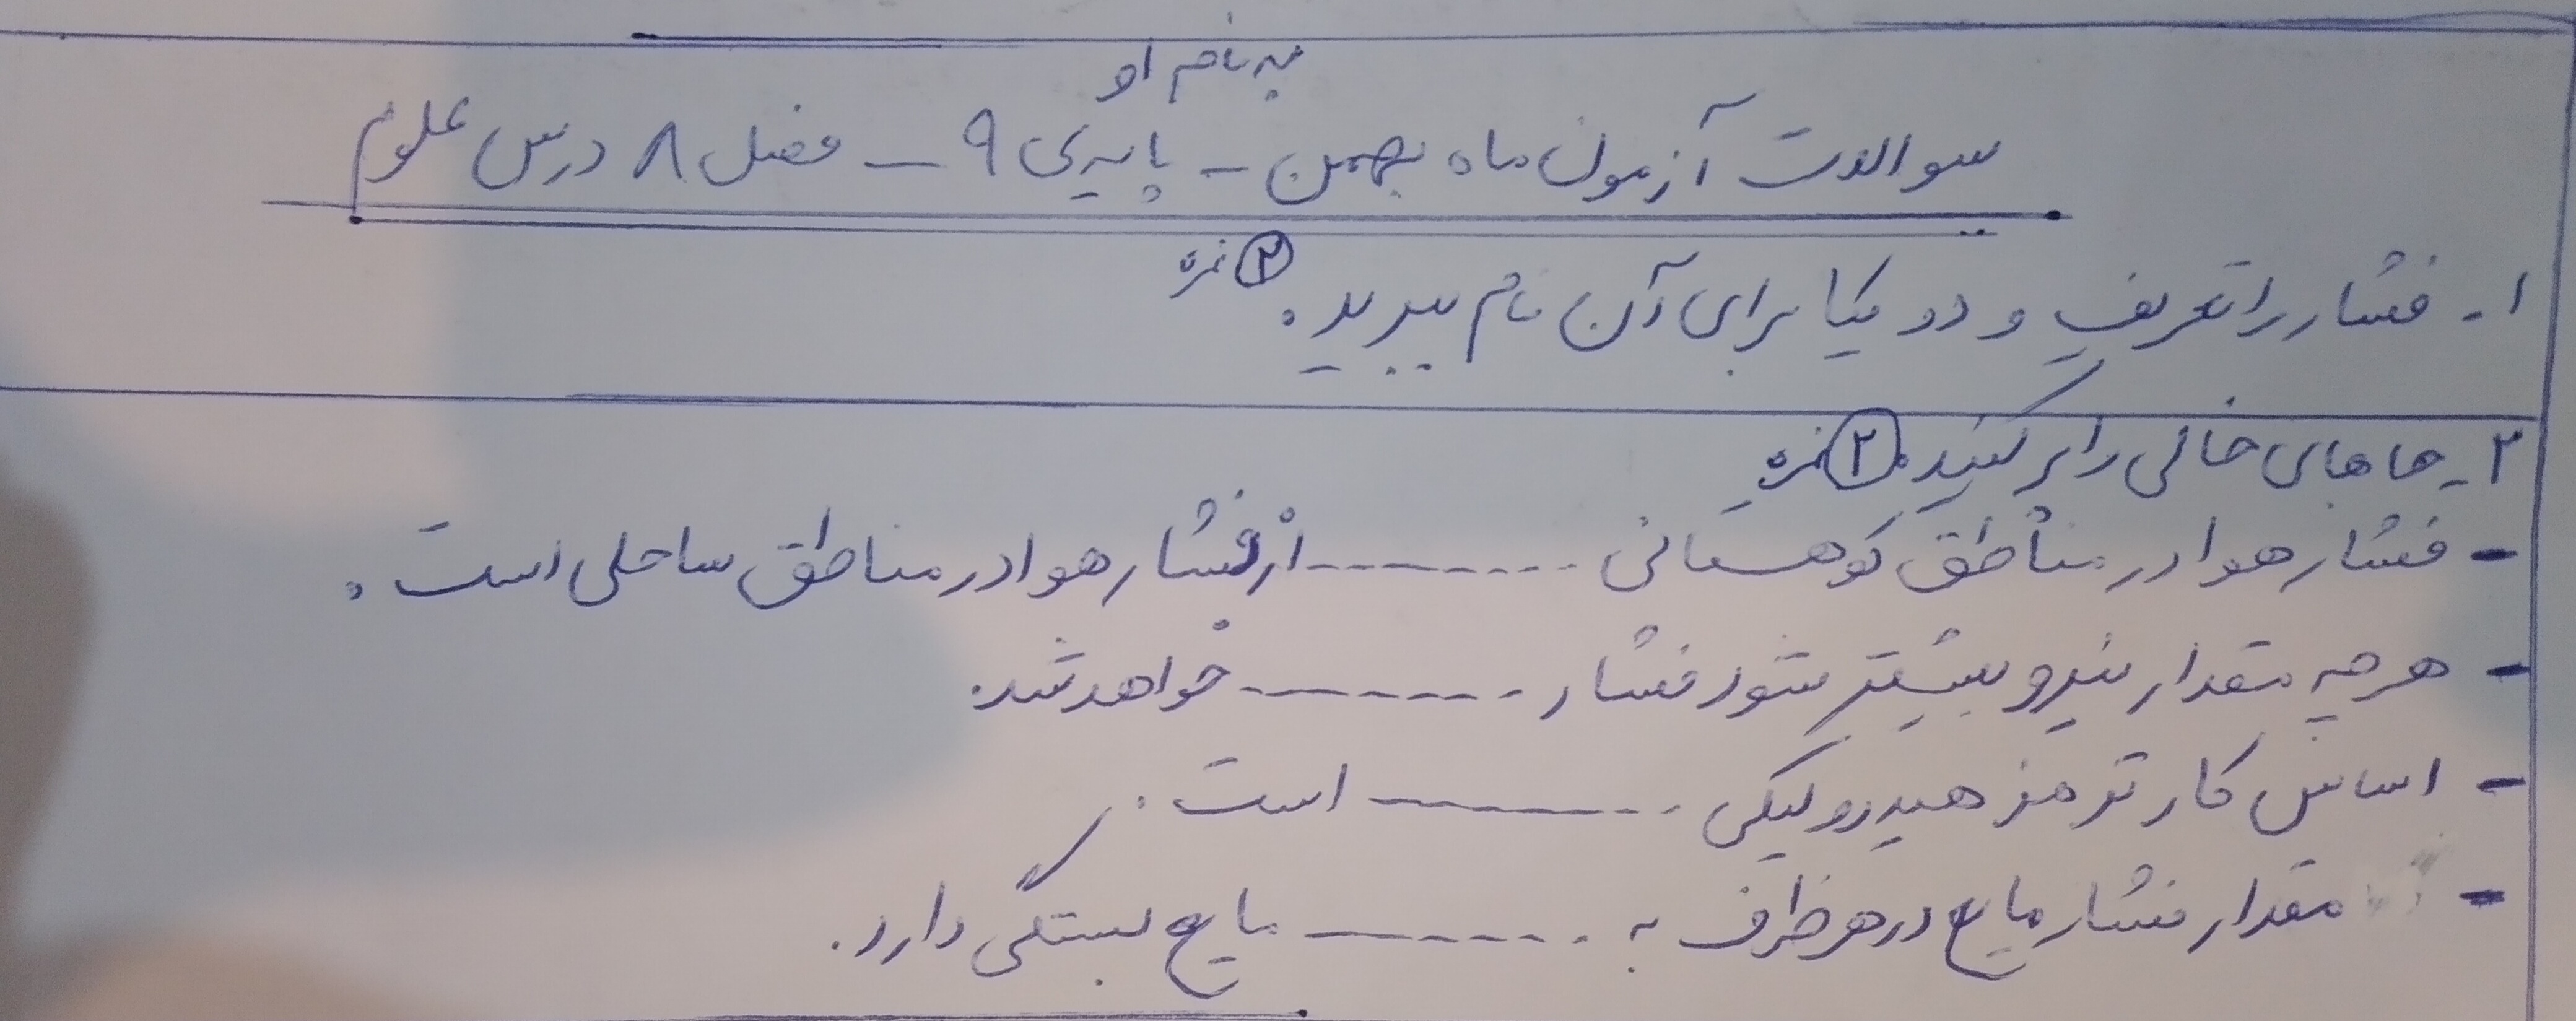 به نام او
سوالات آزمون ماه بهمن - پایه‌ی ۹ - فصل ۸ درس علوم
۱- فشار را تعریف و دو یکا برای آن نام ببرید. ۲ نمره
۲- جاهای خالی را پر کنید. ۲ نمره
- فشار هوا در مناطق کوهستانی -------- از فشار هوا در مناطق ساحلی است.
- هر چه مقدار نیرو بیشتر شود فشار -------- خواهد شد.
- اساس کار ترمز هیدرولیکی -------- است.
- مقدار فشار مایع در هر ظرف به -------- مایع بستگی دارد.